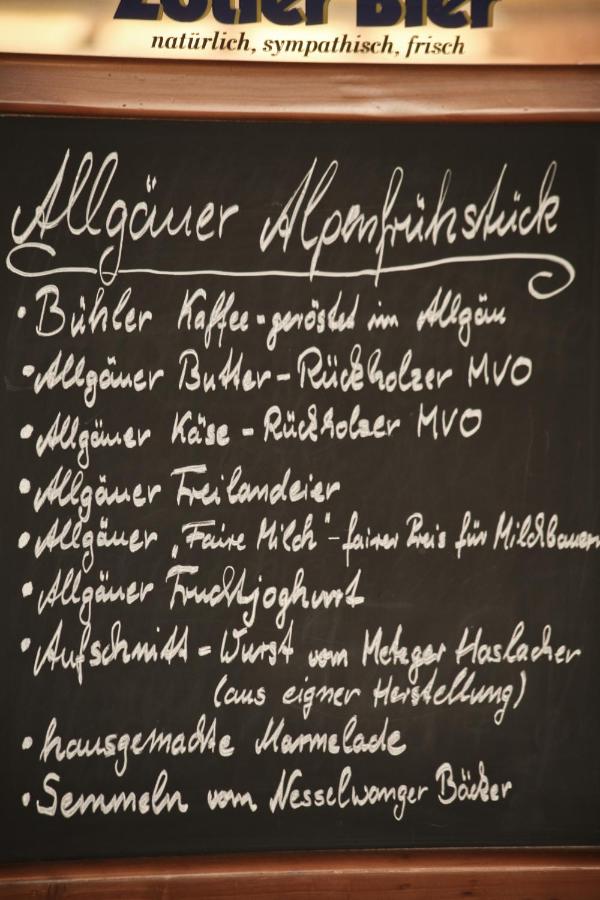 Zötler Bier
natürlich, sympathisch, frisch
Allgäuer Alpenfrühstück
• Bühler Kaffee - geröstet im Allgäu
• Allgäuer Butter - Rückholzer MVO
• Allgäuer Käse - Rückholzer MVO
• Allgäuer Freilandeier
• Allgäuer „Faire Milch" - fairer Preis für Milchbauern
• Allgäuer Fruchtjoghurt
• Aufschnitt = Wurst vom Metzger Haslacher
(aus eigner Herstellung)
• hausgemachte Marmelade
• Semmeln vom Nesselwanger Bäcker